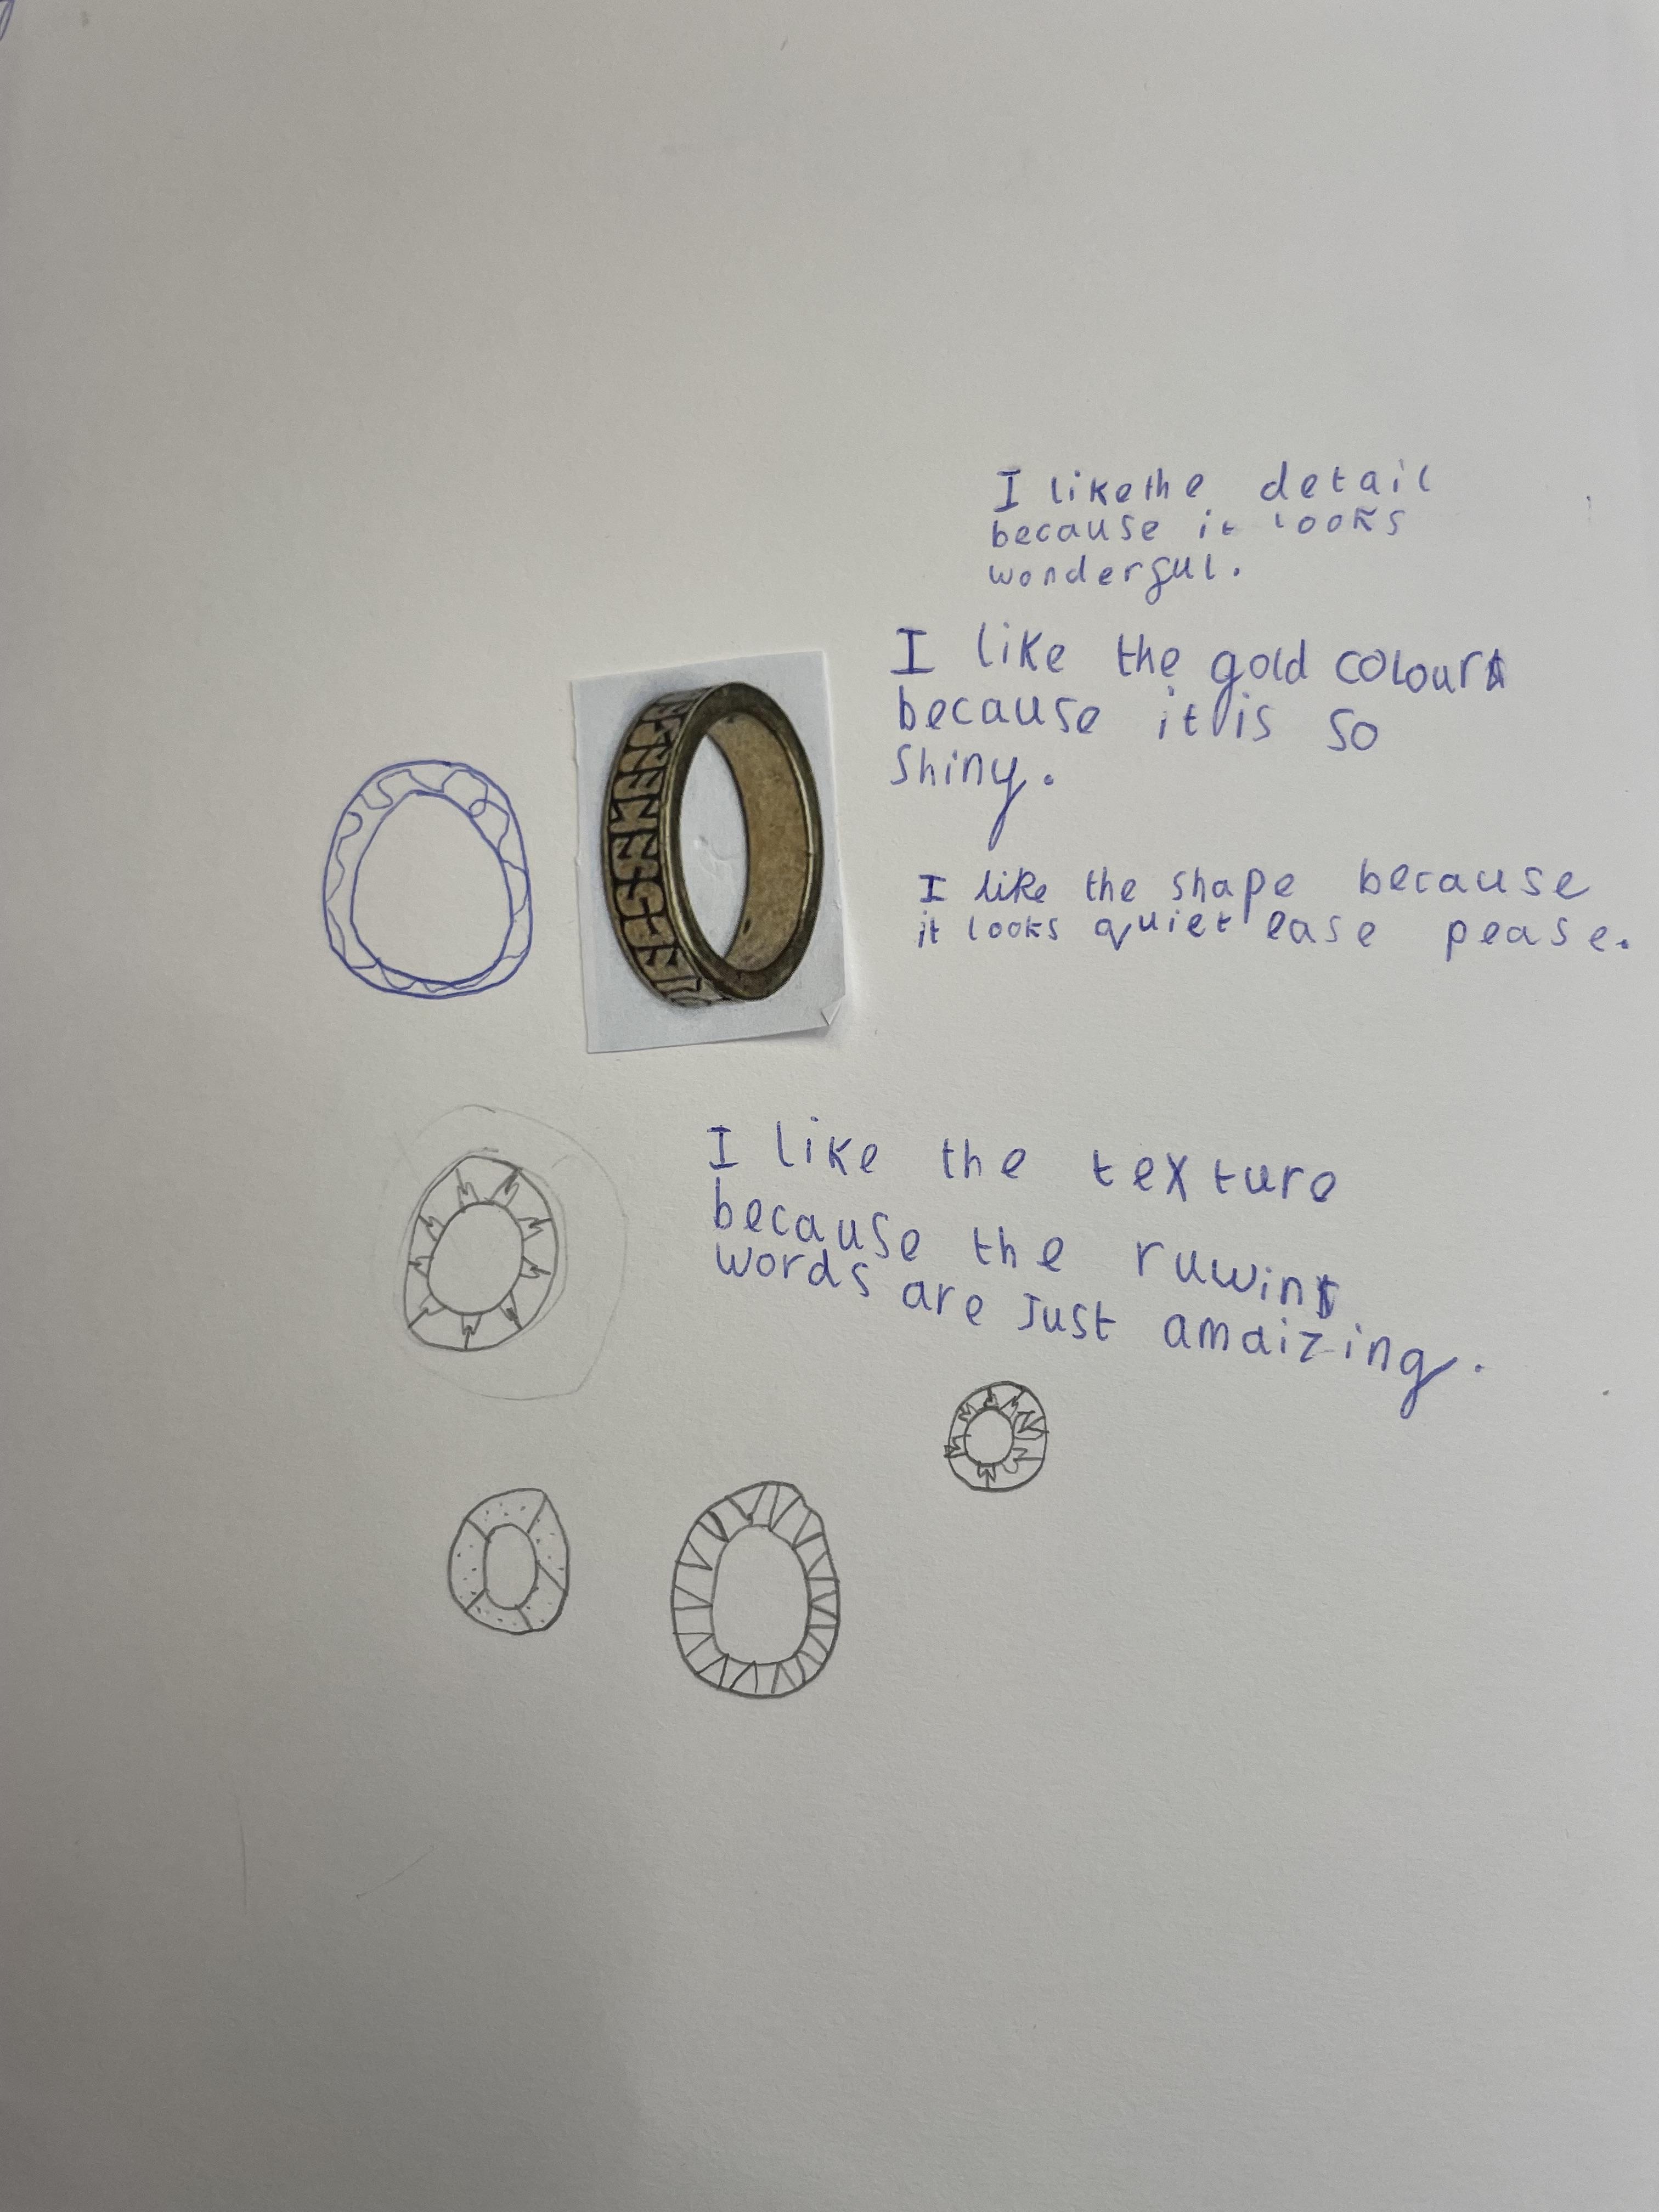 I like the detail
because it looks
wonderful.
I like the gold colour
because it is so
shiny.
I like the shape because
it looks quiet ease pease.
I like the texture
because the ruwin
words are just amaizing.